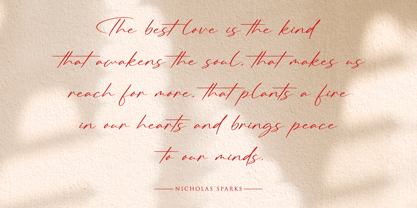 The best love is the kind
that awakens the soul, that makes us
reach for more, that plants a fire
in our hearts and brings peace
to our minds.
NICHOLAS SPARKS